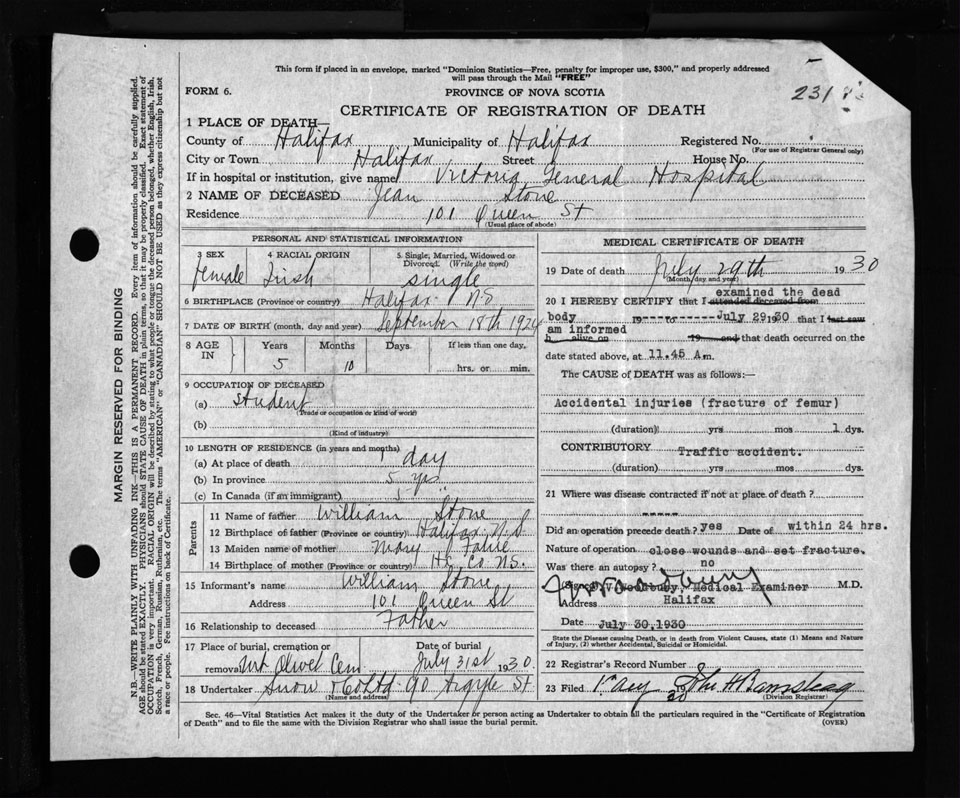 This form if placed in an envelope, marked "Dominion Statistics—Free, penalty for improper use, $300," and properly addressed
will pass through the Mail "FREE"
FORM 6.
PROVINCE OF NOVA SCOTIA
CERTIFICATE OF REGISTRATION OF DEATH
231
1 PLACE OF DEATH—
County of Halifax Municipality of Halifax Registered No.
(For use of Registrar General only)
City or Town Halifax Street House No.
If in hospital or institution, give name Victoria General Hospital
2 NAME OF DECEASED Jean Stone
Residence 101 Queen St
(Usual place of abode)
PERSONAL AND STATISTICAL INFORMATION
3 SEX 4 RACIAL ORIGIN 5 Single, Married, Widowed or
Divorced. (Write the word)
female Irish single
6 BIRTHPLACE (Province or country) Halifax N.S
7 DATE OF BIRTH (month, day and year) September 18th 1924
8 AGE IN Years Months Days If less than one day,
5 10 hrs. or min.
9 OCCUPATION OF DECEASED
(a) student
(Trade or occupation or kind of work)
(b)
(Kind of industry)
10 LENGTH OF RESIDENCE (in years and months)
(a) At place of death 1 day
(b) In province 5 yrs.
(c) In Canada (if an immigrant) 5 "
Parents
11 Name of father William Stone
12 Birthplace of father (Province or country) Halifax N.S
13 Maiden name of mother Mary
14 Birthplace of mother (Province or country) Hx. Co N.S.
15 Informant's name William Stone
Address 101 Queen St
16 Relationship to deceased Father
17 Place of burial, cremation or Date of burial
removal Mt Olivet Cem July 31st 1930.
18 Undertaker Snow & Co Ltd 90 Argyle St
(Name and address)
MEDICAL CERTIFICATE OF DEATH
19 Date of death July 29th 1930
(Month, day and year)
examined the dead
20 I HEREBY CERTIFY that I attended deceased from
body 19 ---- to ----- July 29 1930 that I last saw
am informed
h alive on 19 and that death occurred on the
date stated above, at 11.45 A m.
The CAUSE of DEATH was as follows:—
Accidental injuries (fracture of femur)
(duration) yrs mos 1 dys.
CONTRIBUTORY Traffic accident.
(duration) yrs mos dys.
21 Where was disease contracted if not at place of death?
-----
Did an operation precede death? yes Date of within 24 hrs.
Nature of operation close wounds and set fracture.
Was there an autopsy? no
(Signed) Woodbury, Medical Examiner M.D.
Address Halifax
Date July 30,1930
State the Disease causing Death, or in death from Violent Causes, state (1) Means and Nature
of Injury, (2) whether Accidental, Suicidal or Homicidal.
22 Registrar's Record Number
23 Filed 19 30 John H Barnstead
(Division Registrar)
Sec. 46—Vital Statistics Act makes it the duty of the Undertaker or person acting as Undertaker to obtain all the particulars required in the "Certificate of Registration
of Death" and to file the same with the Division Registrar who shall issue the burial permit. (OVER)
MARGIN RESERVED FOR BINDING
N.B.—WRITE PLAINLY WITH UNFADING INK—THIS IS A PERMANENT RECORD. Every item of information should be carefully supplied.
AGE should be stated EXACTLY. PHYSICIANS should STATE CAUSE OF DEATH in plain terms, so that it may be properly classified. Exact statement of
OCCUPATION is very important. RACIAL ORIGIN will be described by stating to what people or tongue the deceased person belonged, whether English, Irish,
Scotch, French, German, Russian, Ruthenian, etc. The terms "AMERICAN" or "CANADIAN" SHOULD NOT BE USED as they express citizenship but not
a race or people. Fee instructions on back of Certificate.